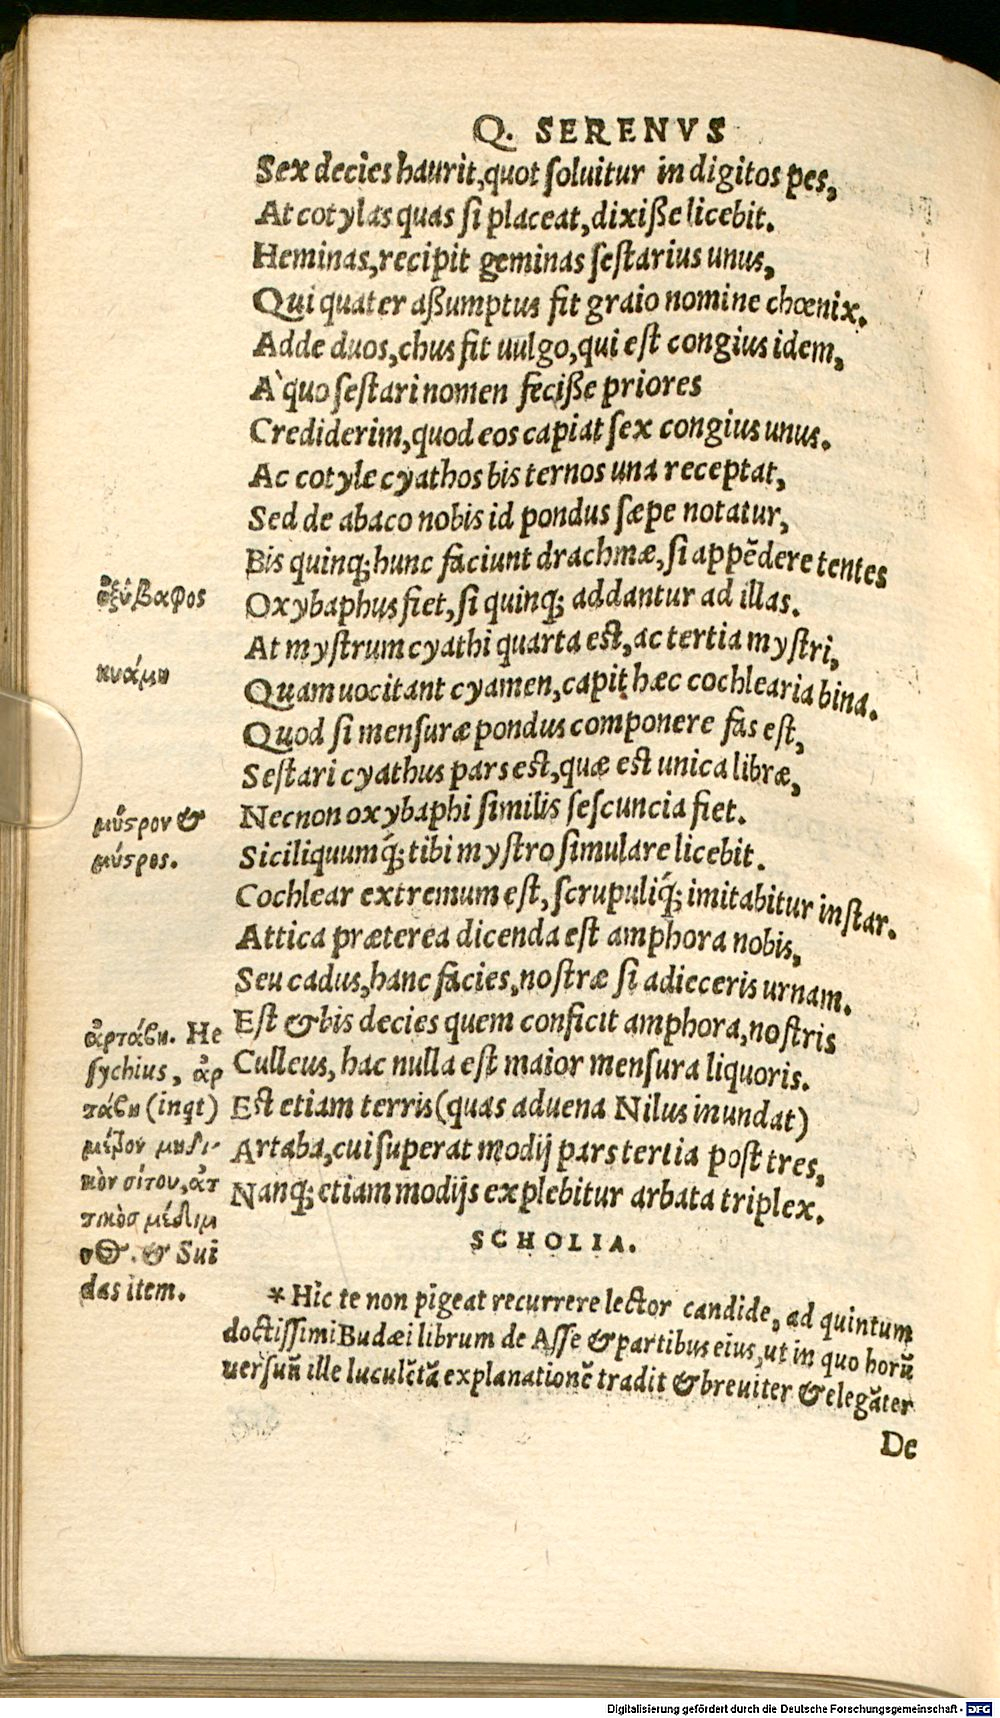 Q. SERENVS
Sex decies haurit, quot soluitur in digitos pes,
At cotylas quas si placeat, dixiße licebit.
Heminas, recipit geminas sestarius unus,
Qui quater aßumptus fit graio nomine chœnix.
Adde duos, chus fit uulgo, qui est congius idem,
A' quo sestari nomen feciße priores
Crediderim, quod eos capiat sex congius unus.
Ac cotyle cyathos bis ternos una receptat,
Sed de abaco nobis id pondus sæpe notatur,
Bis quinq; hunc faciunt drachmæ, si appẽdere tentes
ὀξύβαφος
Oxybaphus fiet, si quinq; addantur ad illas.
At mystrum cyathi quarta est, ac tertia mystri,
κυάμη
Quam uocitant cyamen, capit hæc cochlearia bina.
Quod si mensuræ pondus componere fas est,
Sestari cyathus pars est, quæ est unica libræ,
Necnon oxybaphi similis sescuncia fiet.
μῦστρον &
Siciliquumq́; tibi mystro simulare licebit.
μύστρος.
Cochlear extremum est, scrupuliq́; imitabitur instar.
Attica præterea dicenda est amphora nobis,
Seu cadus, hanc facies, nostræ si adieceris urnam.
Est & bis decies quem conficit amphora, nostris
Culleus, hac nulla est maior mensura liquoris.
Est etiam terris (quas aduena Nilus inundat)
Artaba, cui superat modij pars tertia post tres,
Nanq; etiam modijs explebitur arbata triplex.
ἀρτάβη. He
sychius, ἀρ
τάβη (inqt)
μέτρον μηδι-
κὸν σίτου, ἀτ
τικὸσ μέδιμ
νος. & Sui
das item.
SCHOLIA.
* Hic te non pigeat recurrere lector candide, ad quintum
doctissimi Budæi librum de Asse & partibus eius, ut in quo horũ
uersuũ ille luculẽtã explanationẽ tradit & breuiter & elegãter
De
Digitalisierung gefördert durch die Deutsche Forschungsgemeinschaft - DFG